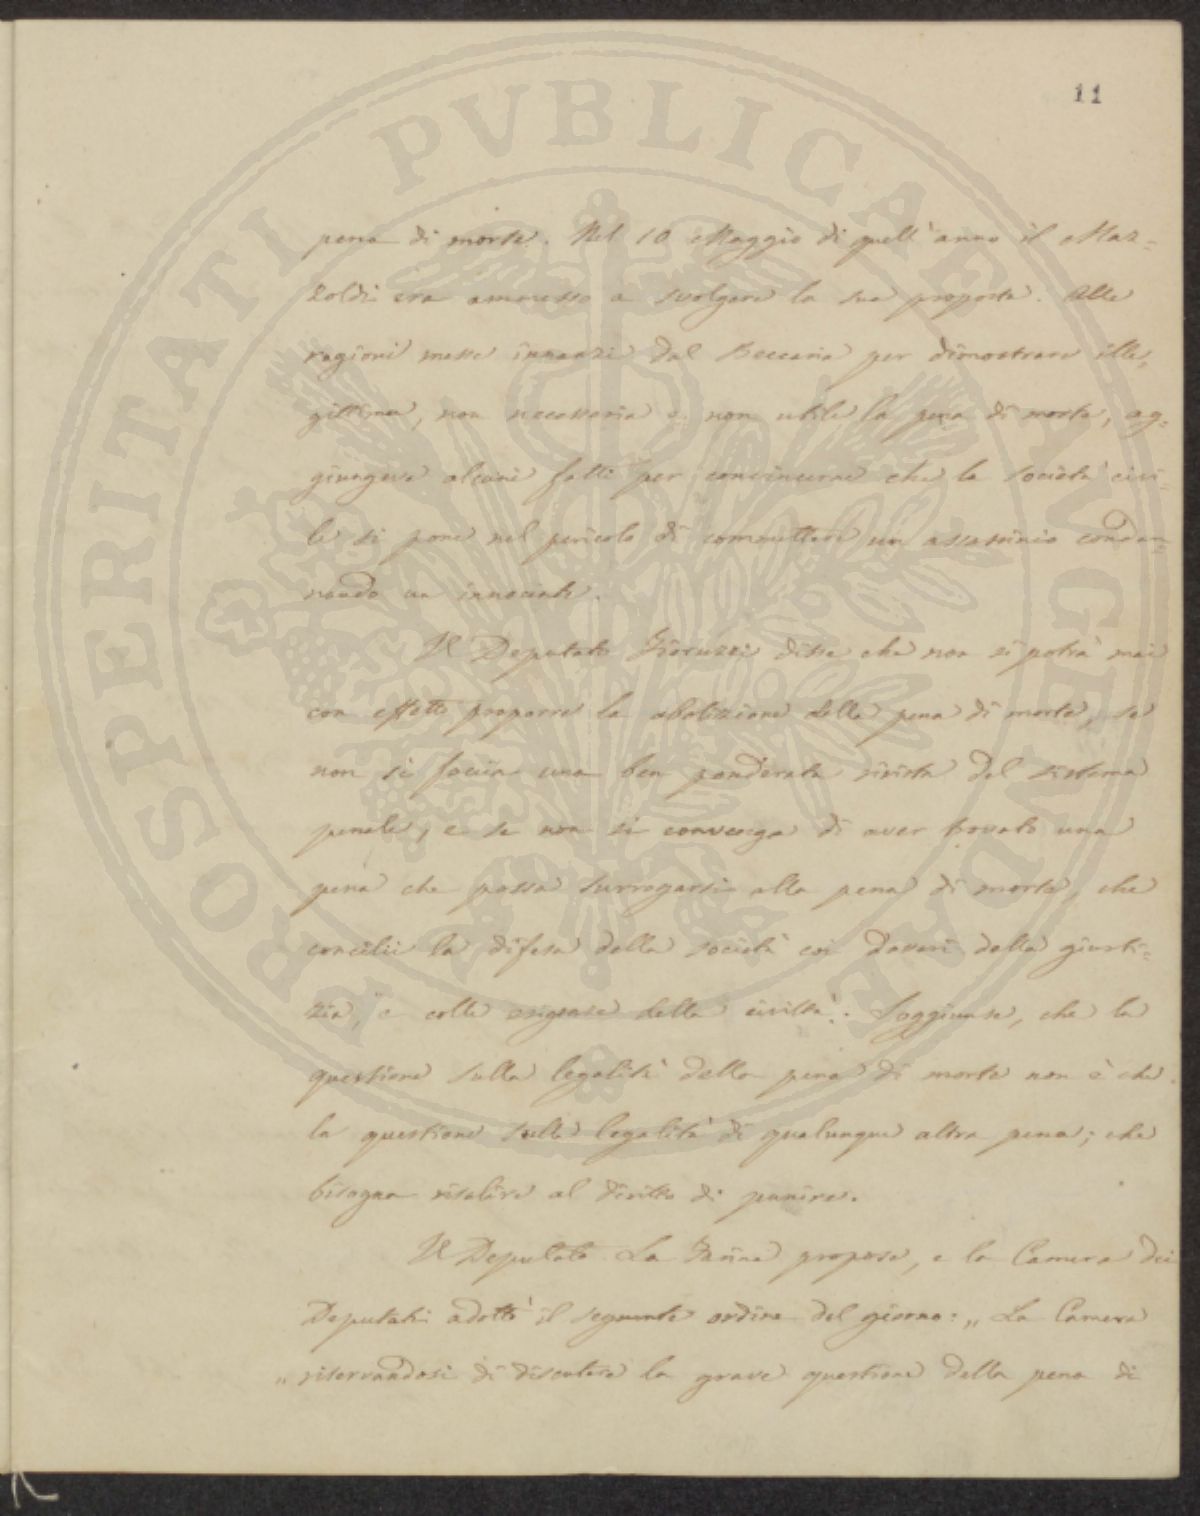 11
pena di morte. Nel 10 Maggio di quell'anno il Maz=
zoldi era ammesso a svolgere la sua proposta. Alle
ragioni messe innanzi dal Beccaria per dimostrare ille,
gittima, non necessaria e non utile la pena di morte, ag=
giungeva alcuni fatti per convincerne che la società civi=
le si pone nel pericolo di commettere un assassinio condan=
nando un innocente.
Il Deputato Fioruzzi disse che non si potrà mai
con effetto proporre la abolizione della pena di morte, se
non si faccia una ben ponderata rivista del sistema
penale, e se non si convenga di aver trovato una
pena che possa surrogarsi alla pena di morte, che
concilii la difesa della società coi doveri della giusti=
zia, e colle esigenze della civiltà. Soggiunse, che la
questione sulla legalità della pena di morte non è che
la questione sulla legalità di qualunque altra pena; che
bisogna risalire al diritto di punire.
Il Deputato La Farina propose, e la Camera dei
Deputati adottò il seguente ordine del giorno: „ La Camera
„ riservandosi di discutere la grave questione della pena di
PROSPERITATI PVBLICAE AVGENDAE